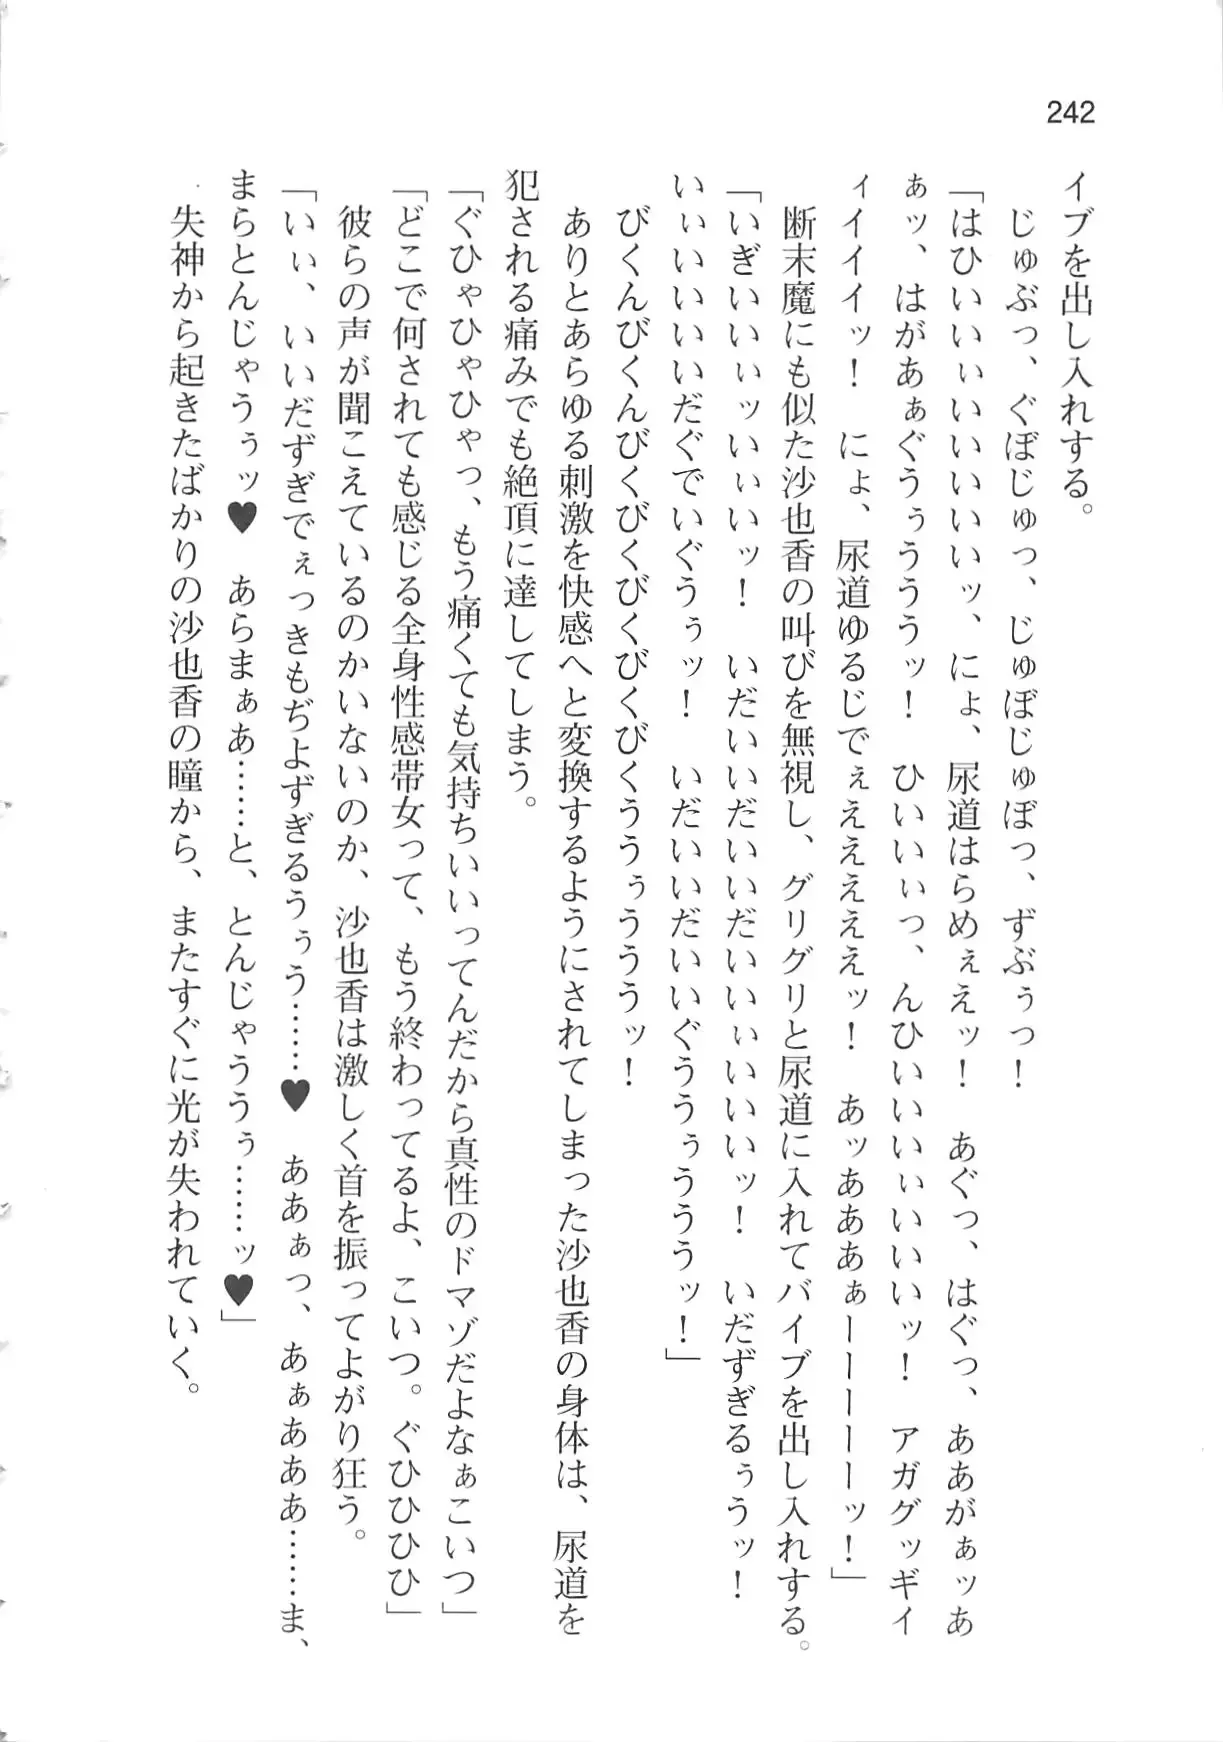 242
イブを出し入れする。
じゅぶっ、ぐぼじゅっ、じゅぼじゅぼっ、ずぶぅっ！
「はひいいぃいいいいいッ、にょ、尿道はらめぇえッ！　あぐっ、はぐっ、ああがぁッあ
ぁッ、はがあぁぐうぅうううッ！　ひいいぃっ、んひいいいぃいいいッ！　アガグッギイ
ィイイイッ！　にょ、尿道ゆるじでぇええええええッ！　あッあああぁーーーーーッ！」
断末魔にも似た沙也香の叫びを無視し、グリグリと尿道に入れてバイブを出し入れする。
「いぎいいぃッいぃいッ！　いだいいだいいだいいぃいいいッ！　いだずぎるぅうッ！
いぃいいいいいだぐでいぐうぅッ！　いだいいだいいぐううぅうううッ！」
びくんびくんびくびくびくびくううぅうううッ！
ありとあらゆる刺激を快感へと変換するようにされてしまった沙也香の身体は、尿道を
犯される痛みでも絶頂に達してしまう。
「ぐひゃひゃひゃっ、もう痛くても気持ちいいってんだから真性のドマゾだよなぁこいつ」
「どこで何されても感じる全身性感帯女って、もう終わってるよ、こいつ。ぐひひひひ」
彼らの声が聞こえているのかいないのか、沙也香は激しく首を振ってよがり狂う。
「いぃ、いいだずぎでぇっきもぢよずぎるうぅう……♥　ああぁっ、あぁあああ……ま、
まらとんじゃうぅッ♥　あらまぁあ……と、とんじゃううぅ……ッ♥」
失神から起きたばかりの沙也香の瞳から、またすぐに光が失われていく。